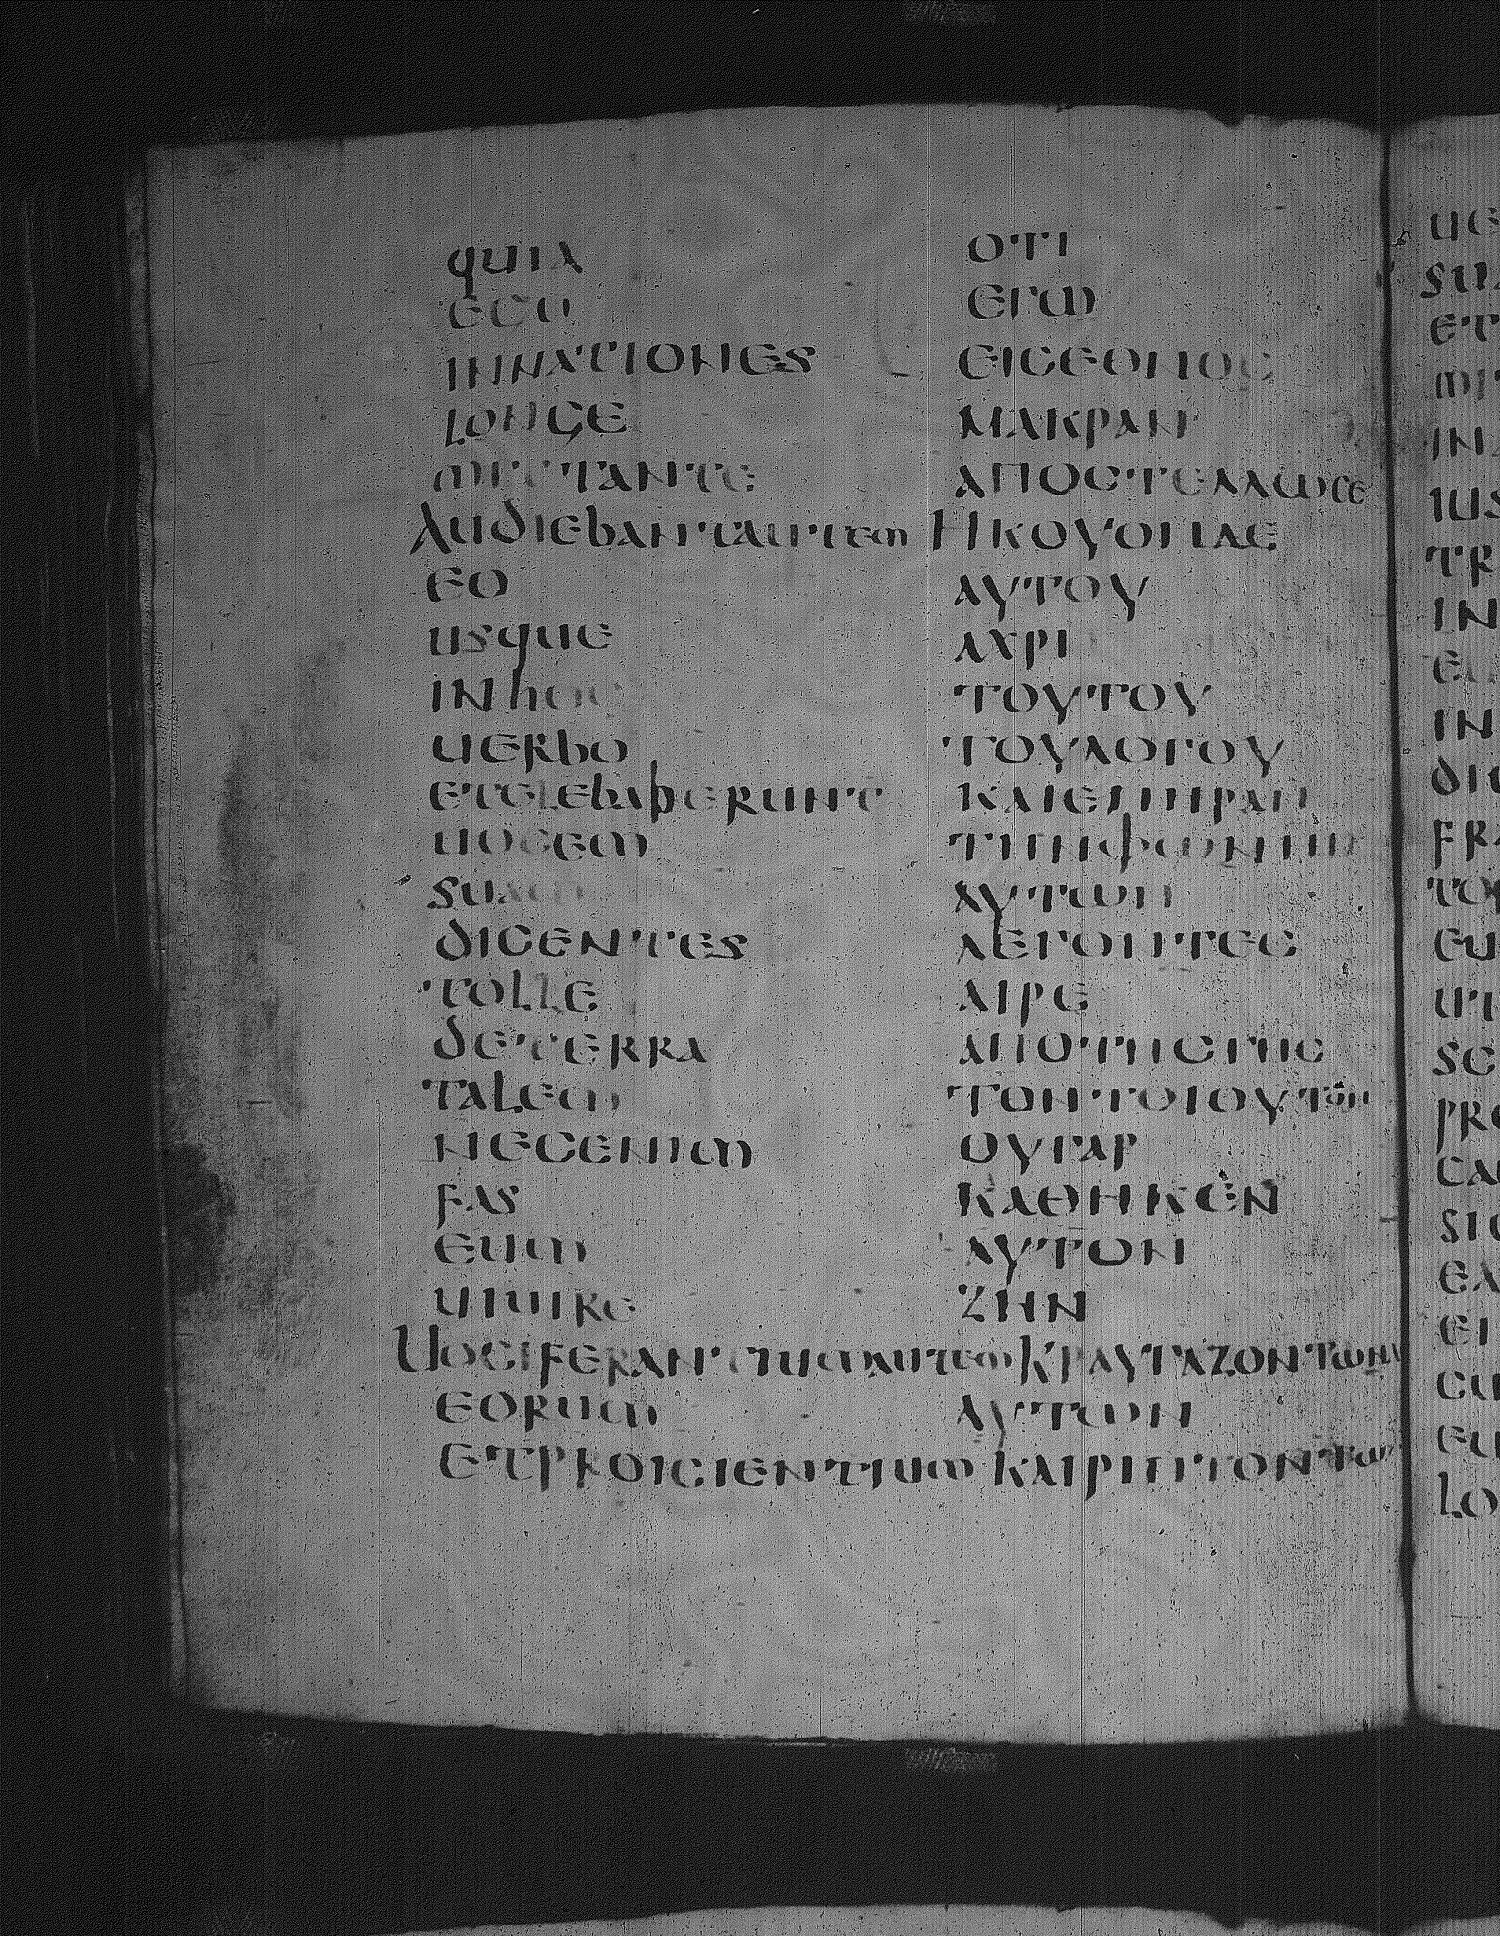 quia
ego
innationes
longe
mittante
Audiebantautem
eo
usque
inhoc
uerbo
etelebaberunt
uocem
suam
dicentes
tolle
deterra
talem
necenim
fas
eum
uiuire
Uociferantiumautem
eorum
etproicientium
ΟΤΙ
ΕΓΩ
ΕΙCΕΘΝΟC
ΜΑΚΡΑΝ
ΑΠΟCΤΕΛΛΩCΕ
ΗΚΟΥΟΝΔΕ
ΑΥΤΟΥ
ΑΧΡΙ
ΤΟΥΤΟΥ
ΤΟΥΛΟΓΟΥ
ΚΑΙΕΠΗΡΑΝ
ΤΗΝΦΩΝΗΝ
ΑΥΤΩΝ
ΛΕΓΟΝΤΕC
ΑΙΡΕ
ΑΠΟΤΗCΓΗC
ΤΟΝΤΟΙΟΥΤΟΝ
ΟΥΓΑΡ
ΚΑΘΗΚΕΝ
ΑΥΤΟΝ
ΖΗΝ
ΚΡΑΥΓΑΖΟΝΤΩΝ
ΑΥΤΩΝ
ΚΑΙΡΙΠΤΟΝΤΩΝ